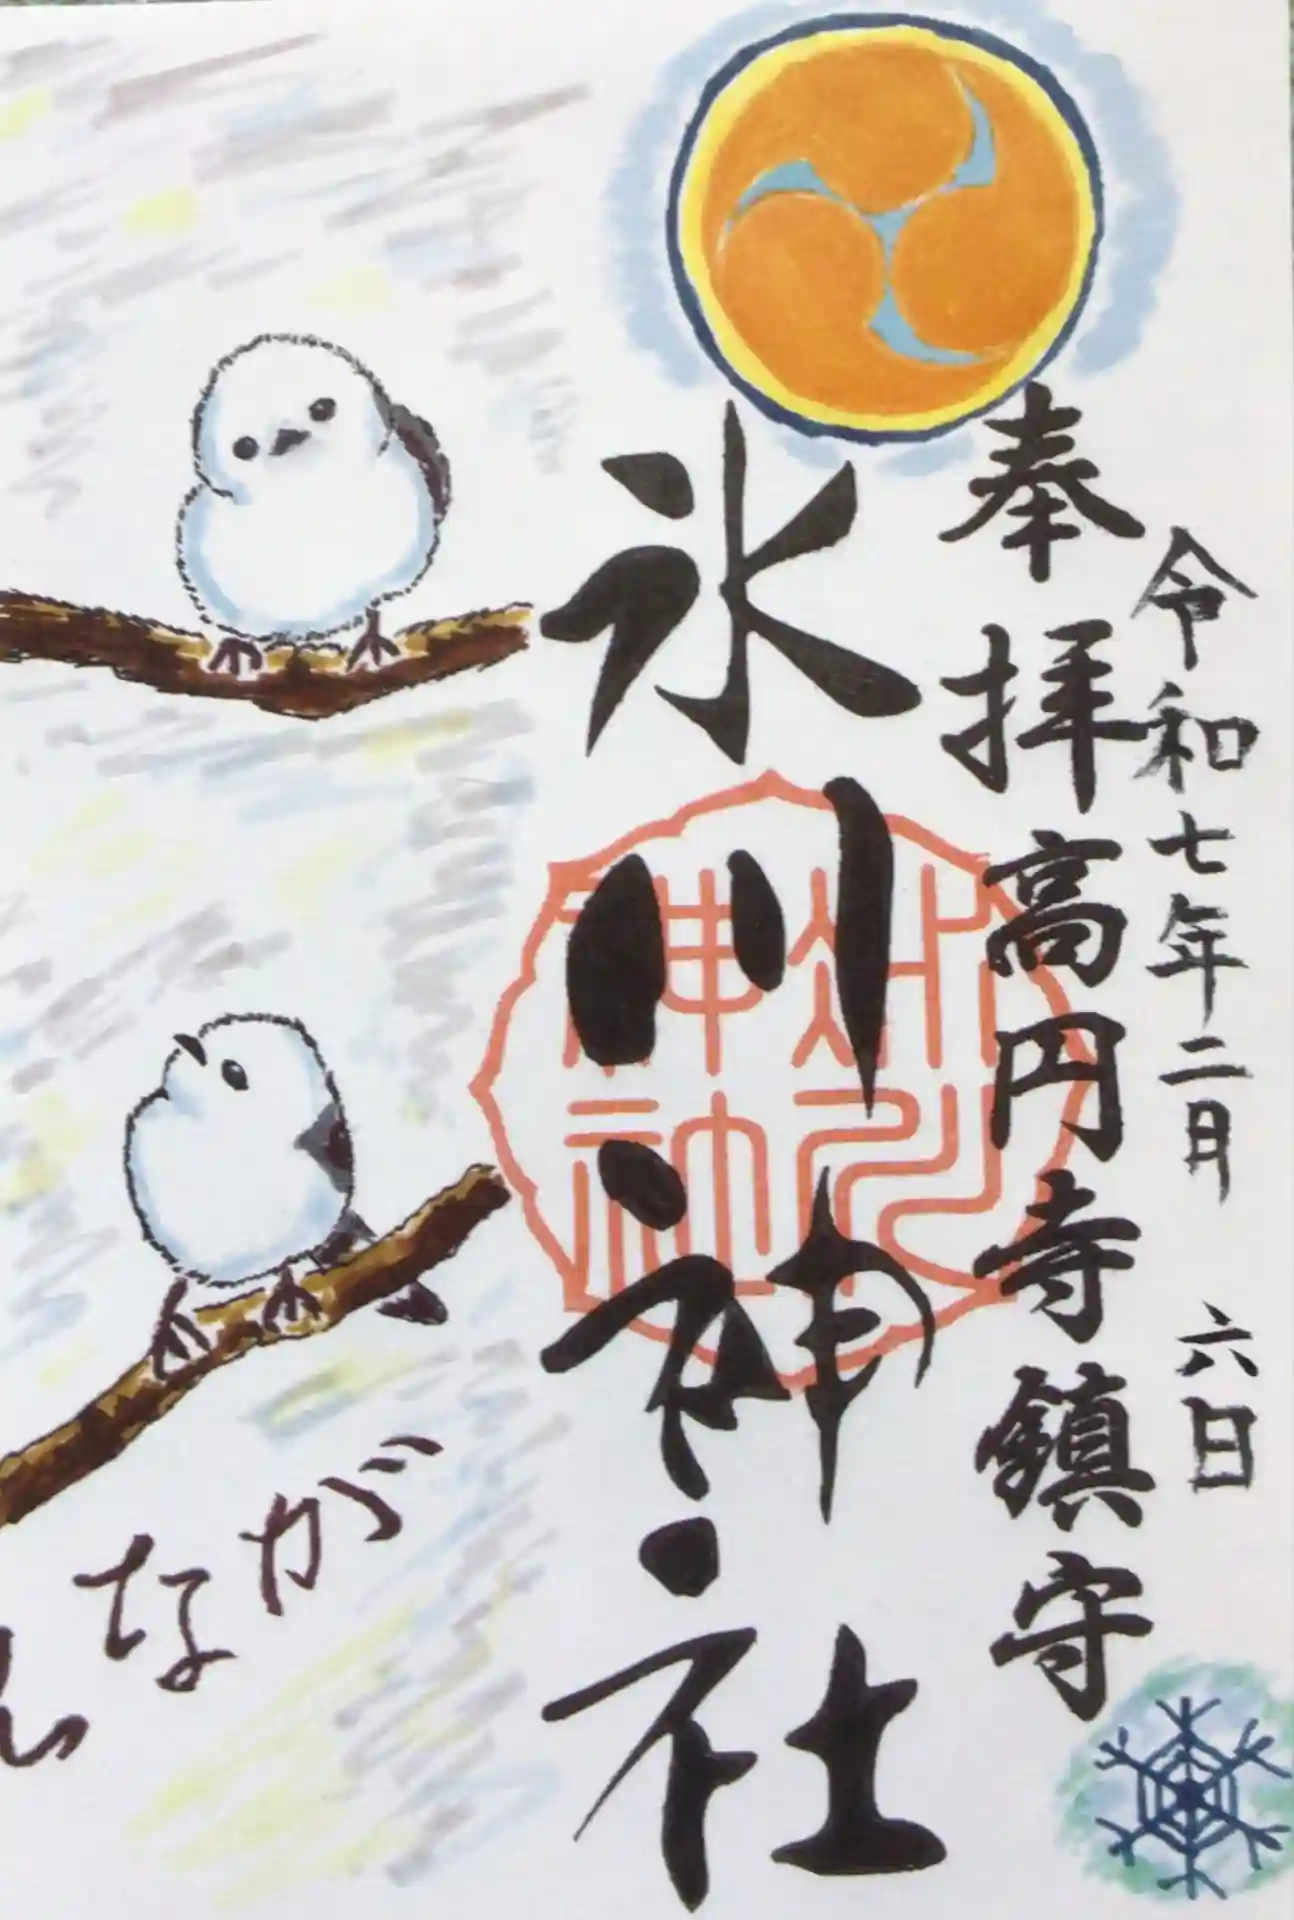 令和七年二月六日
奉拝高円寺鎮守
氷川神社
氷川
神社
がな